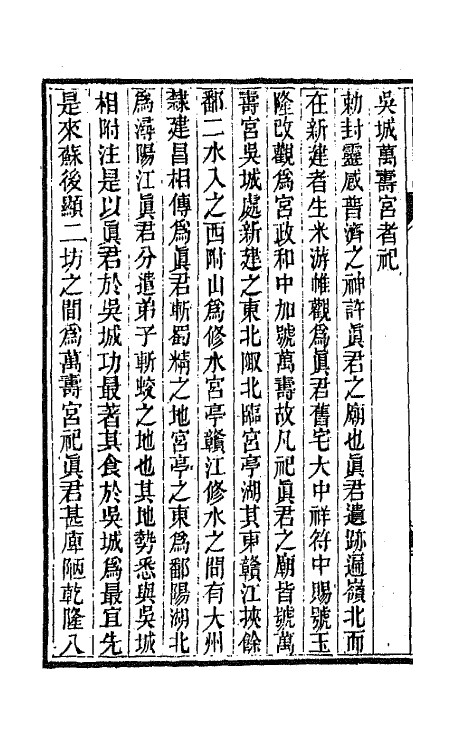 吳城萬壽宮者祀
勅封靈感普濟之神許眞君之廟也眞君遺跡遍嶺北而
在新建者生米游帷觀爲眞君舊宅大中祥符中賜號玉
隆改觀爲宮政和中加號萬壽故凡祀眞君之廟皆號萬
壽宮吳城處新建之東北陬北臨宮亭湖其東贛江挾餘
鄱二水入之西附山爲修水宮亭贛江修水之間有大州
隸建昌相傳爲眞君斬蜀精之地宮亭之東爲鄱陽湖北
爲潯陽江眞君分遣弟子斬蛟之地也其地勢悉與吳城
相附注是以眞君於吳城功最著其食於吳城爲最宜先
是來蘇後顯二坊之間爲萬壽宮祀眞君甚庳陋乾隆八